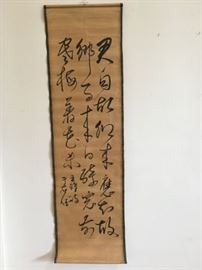 君自故鄉來應知故
鄉事來日綺窗前
寒梅著花未